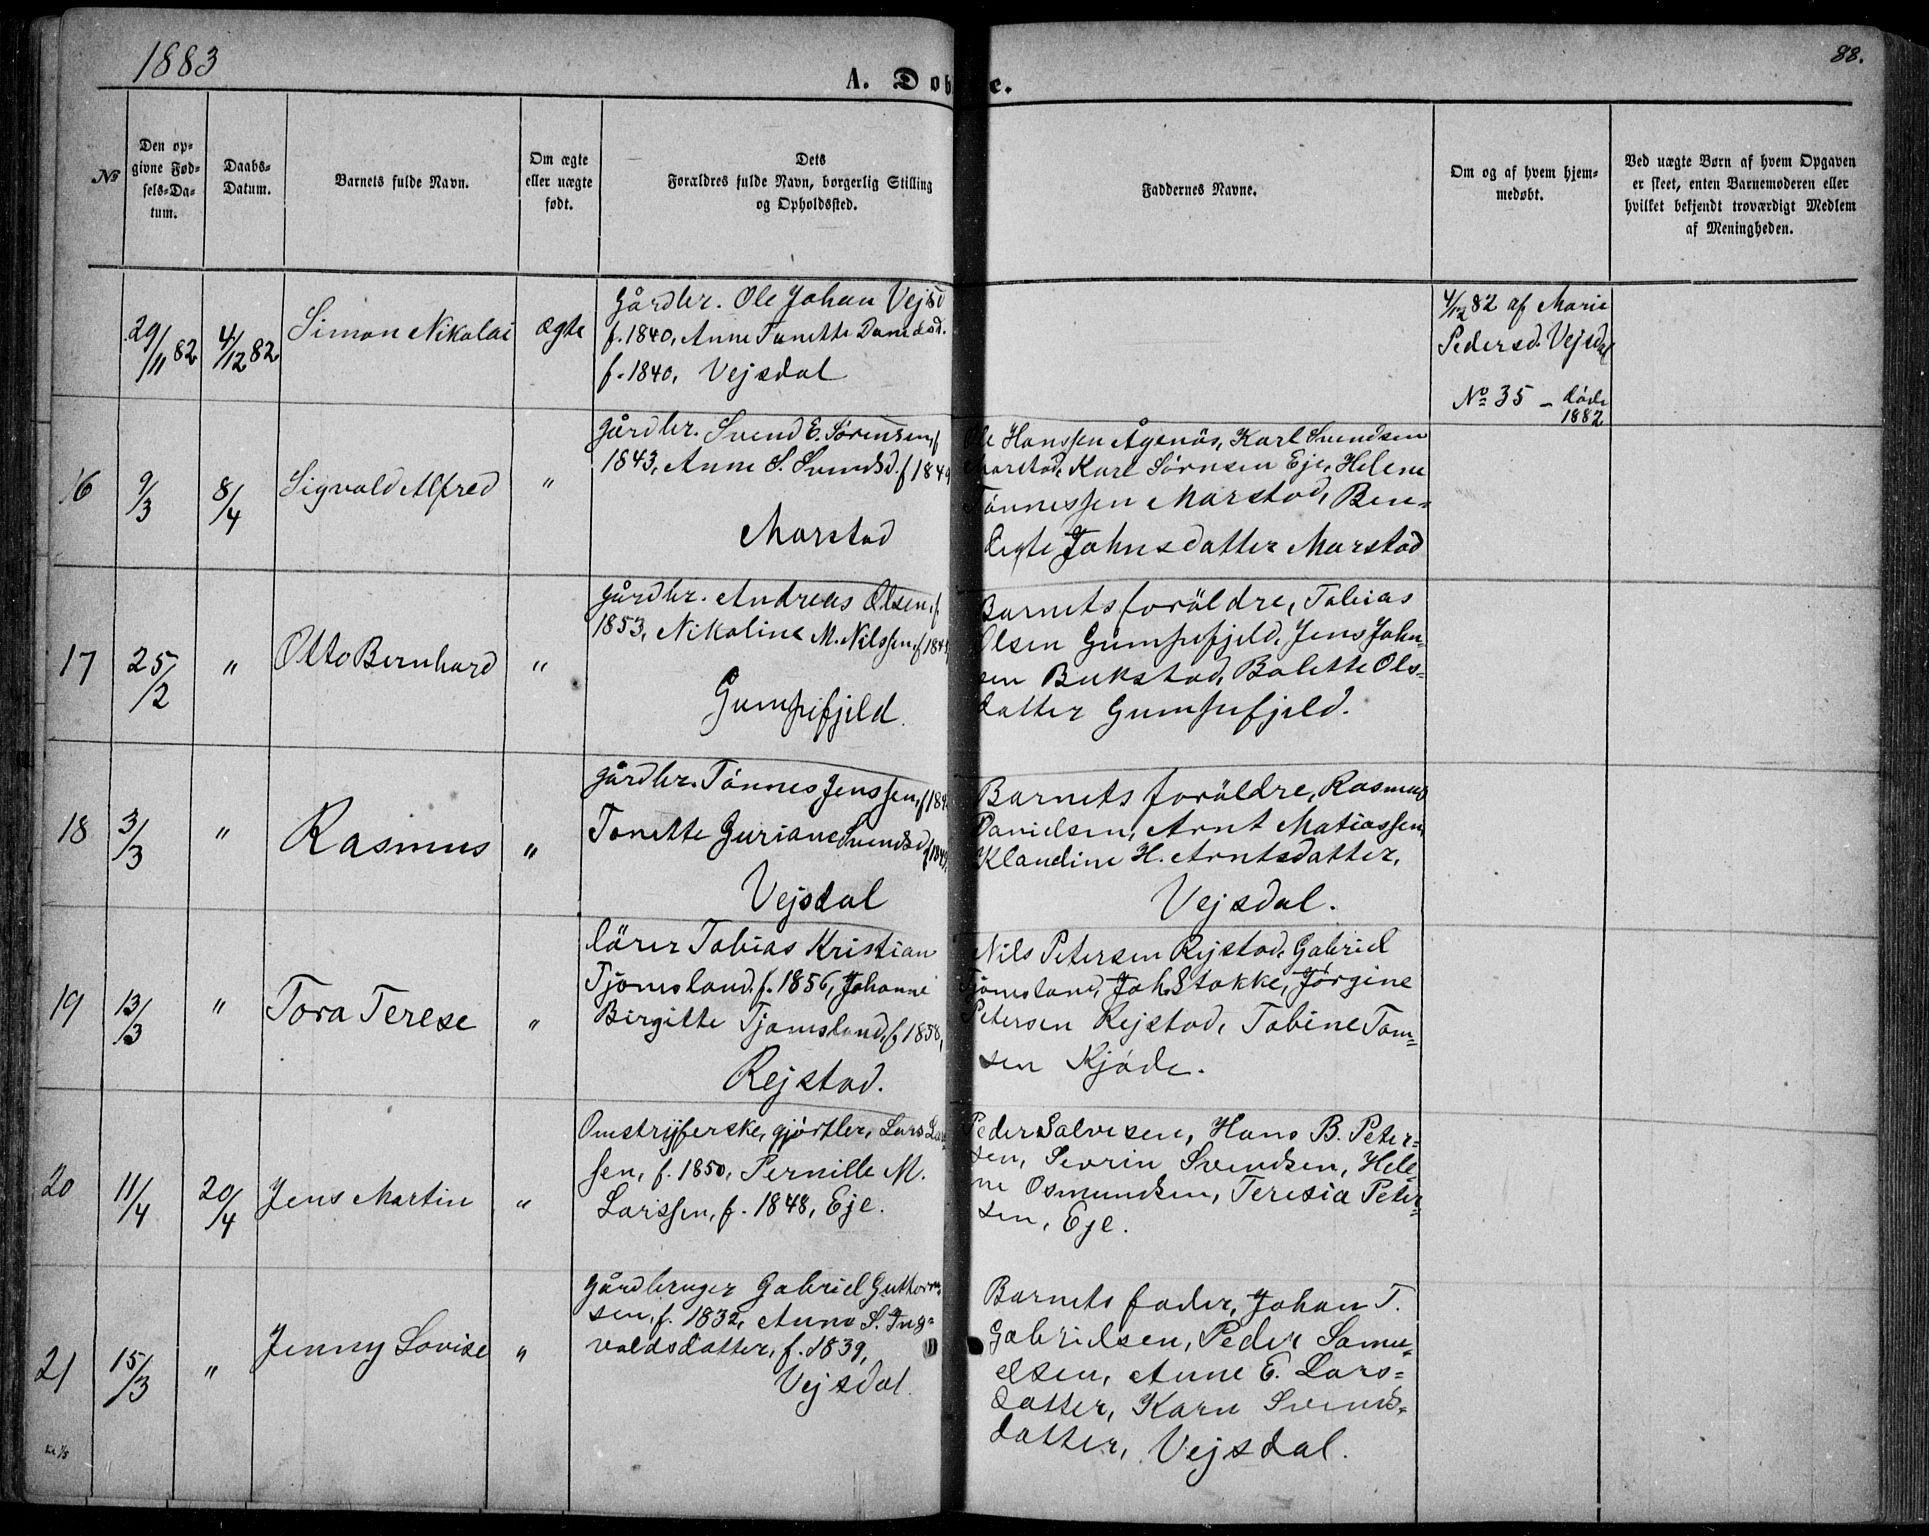 1883
88.
A. Dob e.
№
Den op-
givne Fød-
sels-Da-
tum.
Daabs-
Datum.
Barnets fulde Navn.
Om ægte
eller uægte
født.
Dets
Forældres fulde Navn, borgerlig Stilling
og Opholdssted.
Faddernes Navne.
Om og af hvem hjem-
medøbt.
Ved uægte Børn af hvem Opgaven
er skeet, enten Barnemoderen eller
hvilket bekjendt troværdigt Medlem
af Menigheden.
29/11 82
4/12 82
Simon Nikolai
ægte
Gårdbr. Ole Johan Vejsd
f. 1840, Anne Tonette Danielsd.
f. 1840, Vejsdal
4/12 82 af Marie
Pedersd. Vejsdal
No 35 - døde
1882
16
9/3
8/4
Sigvald Alfred
"
gårdbr. Svend E. Sørensen, f
1843, Anne S. Svendsd. f 1849
Marstad
Ole Hanssen Ågenäs, Karl Svendsen
Marstad, Karl Sørnsen Eje, Helene
Tönnessen Marstad, Ben-
degte Johnsdatter Marstad
17
25/2
"
Otto Bernhard
"
gårdbr. Andreas Olsen, f
1853, Nikoline M. Nilssen, f 184
Gumpefjeld.
Barnets foräldre, Tobias
Olsen Gumpefjeld, Jens John-
sen Bukstad, Bolette Ols-
datter Gumpefjeld.
18
3/3
"
Rasmus
"
gårdbr. Tönnes Jenssen, f 184
Tonette Guriane Svendsd f 1849
Vejsdal
Barnets foräldre, Rasmus
Danielsen, Arnt Matiassen
Klaudine H. Arntsdatter,
Vejsdal.
19
13/3
"
Tora Terese
"
lärer Tobias Kristian
Tjomsland. f. 1856, Johanne
Birgitte Tjomsland, f 1858,
Rejstad.
Nils Petersen Rejstad, Gabriel
Tjomsland, Joh. Stokke, Jörgine
Petersen Rejstad, Tobine Tom-
sen Kjöde.
20
11/4
20/4
Jens Martin
"
Omstrijferske, gjörtler, Lars Lars
sen, f. 1850, Pernille M.
Larssen, f. 1848, Eje.
Peder Salvesen, Hans B. Peter-
sen, Sevrin Svendsen, Hele
ne Osmundsen, Teresia Peter-
sen, Eje.
21
15/3
"
Jenny Lovise
"
gårdbruger Gabriel Guttorm-
sen, f. 1832, Anne S. Ing-
valdsdatter, f. 1839,
Vejsdal.
Barnets fader, Johan T.
Gabrielsen, Peder Samu-
elsen, Anne E. Lars-
datter, Karn Svends-
datter, Vejsdal.